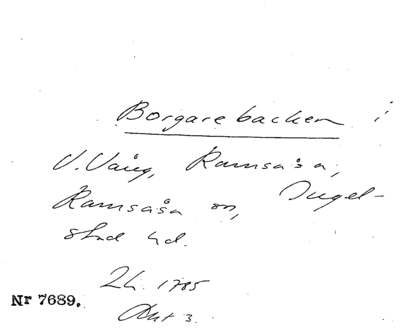 Borgarebacken i
V. Vång, Ramsåsa,
Ramsåsa sn, Ingel-
stad hd.
Lh. 1785
Akt 3.
Nr 7689.